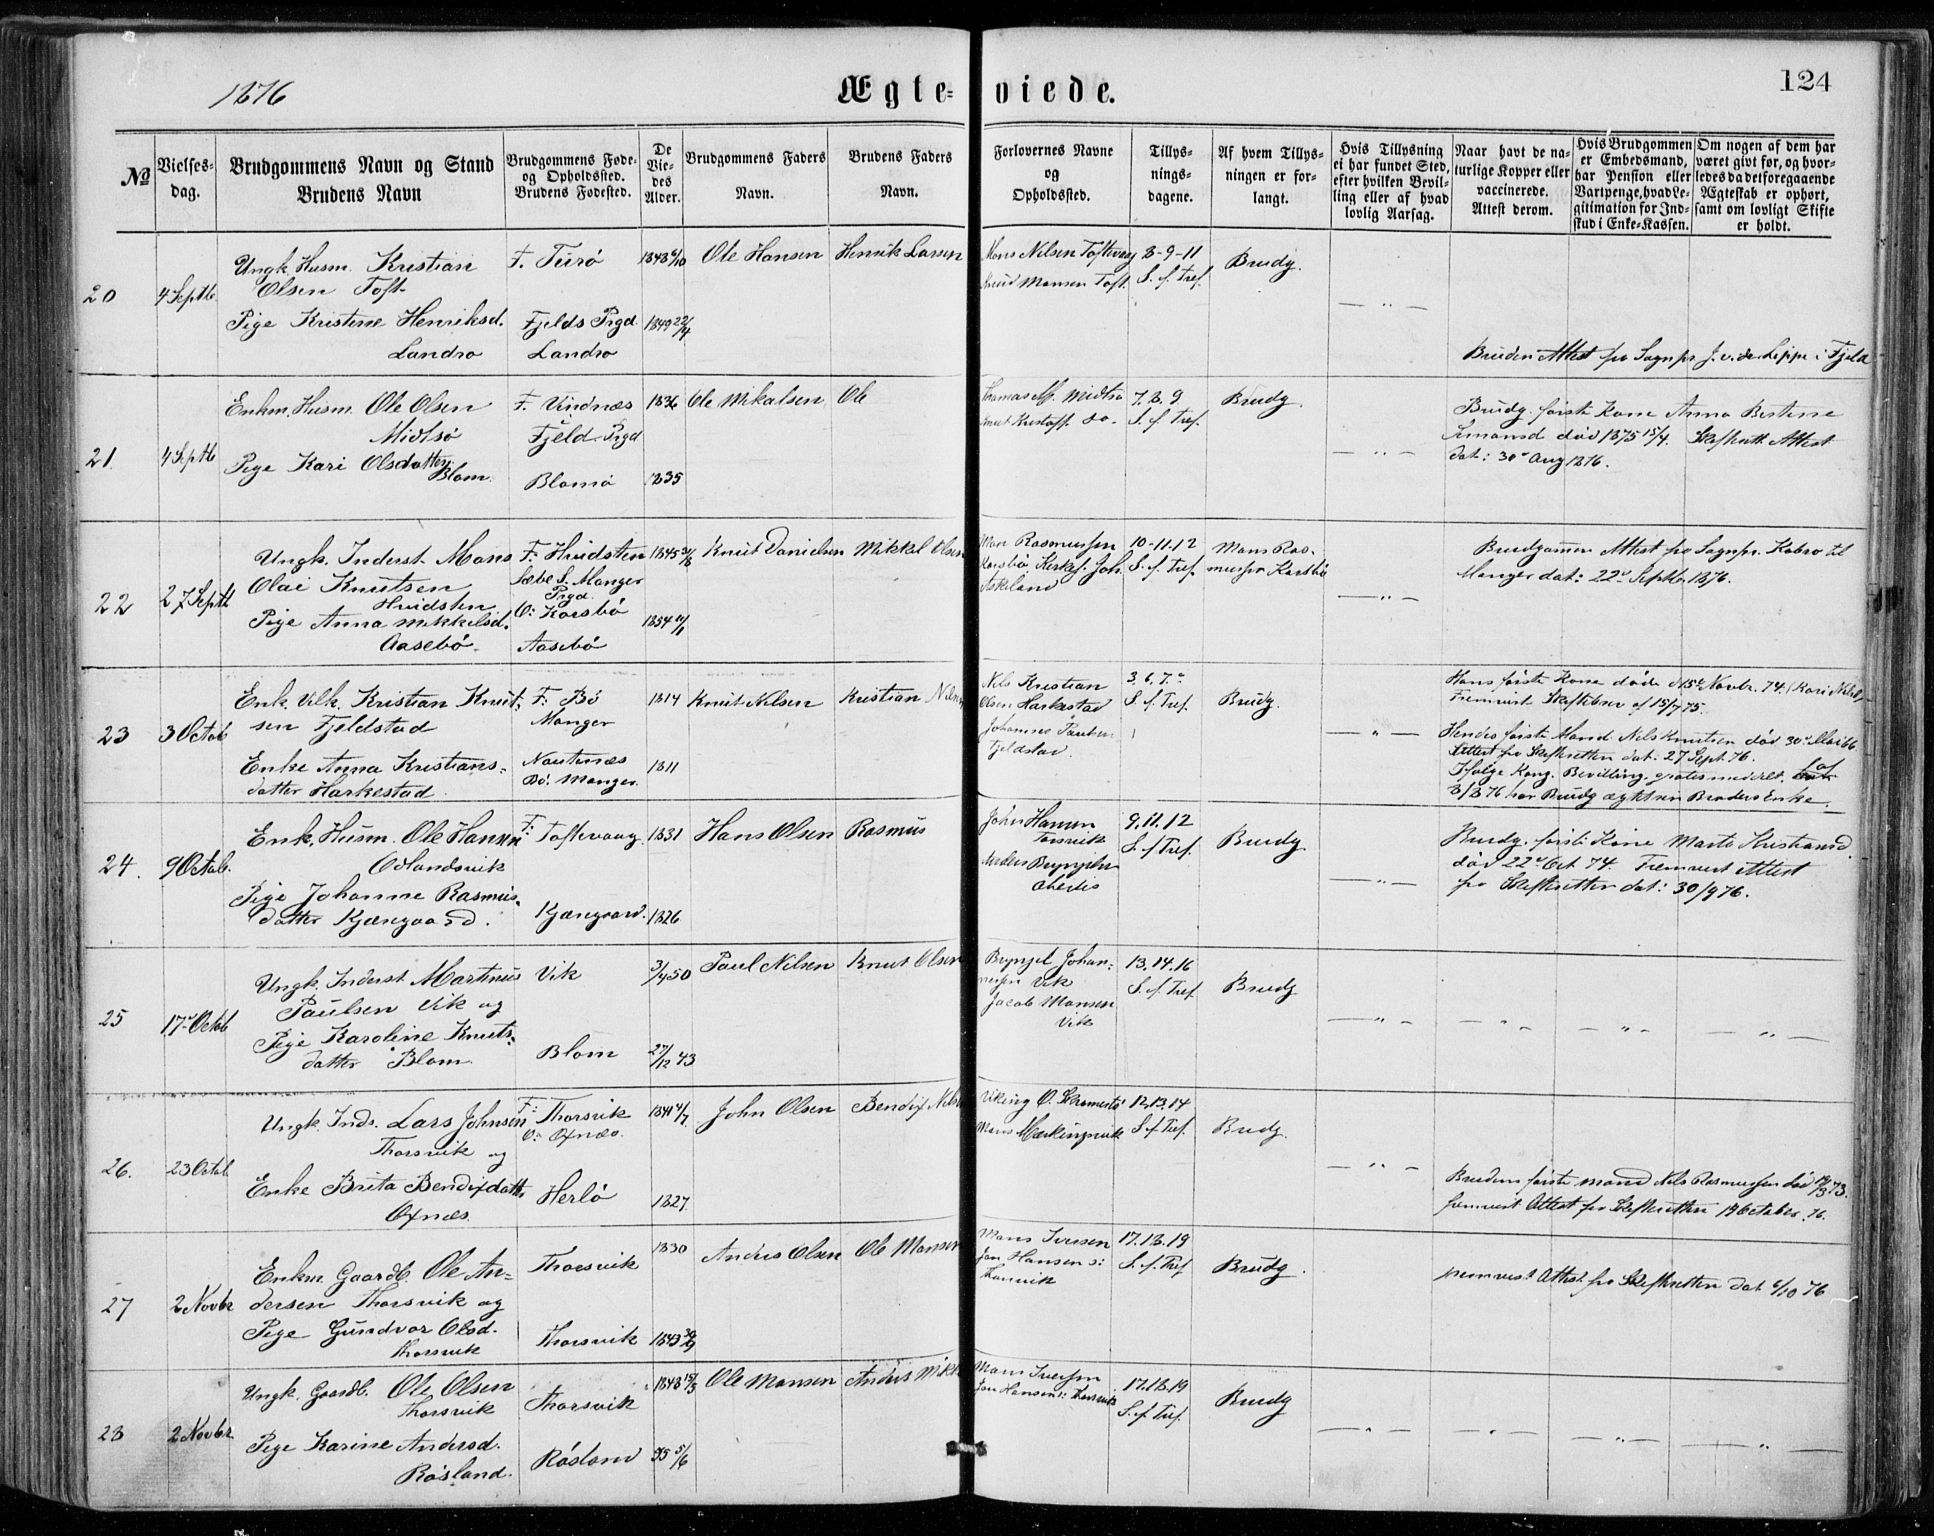 1876
Ægte-
viede.
124
№
Vielses-
dag.
Brudgommens Navn og Stand
Brudens Navn
Brudgommens Føde-
og Opholdssted.
Brudens Fødested.
De
Vie-
des
Alder.
Brudgommens Faders
Navn.
Brudens Faders
Navn.
Forlovernes Navne
og
Opholdssted.
Tillys-
nings-
dagene.
Af hvem Tillys-
ningen er for-
langt.
Hvis Tillysning
ei har fundet Sted,
efter hvilken Bevil-
ling eller af hvad
lovlig Aarsag.
Naar havt de na-
turlige Kopper eller
vaccinerede.
Attest derom.
Hvis Brudgommen
er Embedsmand,
har Pension eller
Vartpenge, hvad Le-
gitimation for Ind-
skud i Enke-Kassen.
Om nogen af dem har
været givt før, og hvor-
ledes da det foregaaende
Ægteskab er ophørt,
samt om lovligt Skifte
er holdt.
20
4 Septb
Ungk. Husm. Kristian
Olsen Toft
Pige Kristine Henriksd.
Landro
F. Turø
Fjelds Prgd.
Landro
1848 6/10
1849 22/4
Ole Hansen
Henrik Larsen
Mons Nilsen Toftevaag
Knud Monsen Toft
8-9-11
S. f. Tref.
Brudg.
Bruden Attest fra Sognpr J. v. der Lippe i Fjeld
21
4 Septb
Enkm. Husm. Ole Olsen
Midtsø
Pige Kari Olsdatter
Blom.
F. Vindnæs
Fjeld Prgd
Blomø
1836
1835
Ole Mikalsen
Ole
7. 8. 9
S. f. Tref.
Brudg.
Brudg. første Kone Anna Bertine
Simonsd død 1875 15/4. Skifterett Attest
dat: 30 Aug 1876.
22
27 Septb
Ungk. Inderst. Mons
Olai Knutsen
Hvidsten
Pige Anna Mikkelsd.
Aasebø.
F: Hvidsten
Sæbø S. Manger
Prgd.
O: Karsbø
Aasebø
1845
1854
Knut Danielsen
Mikkel Olsen
Mons Rasmussen
Karsbø, Kirkes. Joh.
Askeland
10-11.12
S. f. Tref.
Mons Ras-
mussen Karsbø
Brudgommen Attest fra Sognpr. Kobro til
Manger dat: 22 Septbr. 1876.
23
3 Octob
Enk. Vilk. Kristian Knut-
sen Fjeldstad
Enke Anna Kristians-
datter Harkestad.
F: Bø
Manger
Nautnæs
Bø. Manger.
1814
1811
Knut Nilsen
Kristian Nilsen
Nils Kristian
Olsen Harkestad
Johannes Paulsen
Fjeldstad.
3. 6. 7.
S. f. Tref.
Brudg.
Hans første Kone døde d 15 Novbr. 74. (Kari Nilsd,
Fremvist Skiftebrev af 15/7 75.
Hendes første Mand Nils Knutsen død 30 Mai 66
Attest fra Skifteretten dat: 27 Sept. 76.
Ifølge Kong. Bevilling, gratis meddelt, af
8/8 76 har Brudg ægtet sin Broders Enke.
24.
9 Octob.
Enk. Husm. Ole Hansen
Odlandsvik
Pige Johanne Rasmus-
datter Kjærgaard.
F: Toftevaag
Kjærgaard.
1831
1826
Hans Olsen
Rasmus
John Hansen
Torsvik
9. 11. 12
S. f. Tref.
Brudg
Brudg. første Kone Marta Kristiansd.
død 22 Oct 74. Fremvist Attest
fra Skifteretten dat: 30/9 76.
25
17 Octob
Ungk. Inderst Martinus
Paulsen Vik og
Pige Karoline Knuts-
datter Blom.
Vik
Blom
3/4 50
27/12 43
Paul Nilsen
Knut Olsen
Brynjel Johan-
nesen Vik
Jacob Monsen
Vik
13. 14. 16
S. f. Tref
Brudg
26.
23 Octob
Ungk. Inds. Lars Johnsen
Thorsvik og
Enke Brita Bendixdatt
Oxnæs.
F: Thorsvik
O: Oxnæs.
Herlø
1841 4/7
1827.
John Olsen
Bendix Nils
Viking O.
Mons
12.13.14
S. f. Tref.
Brudg.
Brudens første Mand Nils Rasmussen død 73.
fremvist Attest fra Skifteretten 19 October 76.
27
2 Novbr
Enkm Gaardb. Ole An-
dersen Thorsvik og
Pige Gundvor Olsd.
Thorsvik
Thorsvik
Thorsvik
1830
1843
Anders Olsen
Ole Monsen
Mons Iversen
Jan Hansen s:
Thorsvik
17.18.19
S. f. Tref
Brudg.
fremvist Attest fra Skifteretten dat 6/10 76
28
2 Novbr
Ungk. Gaardb. Ole Olsen
Thorsvik
Pige Karine Andersd.
Røsland.
Thorsvik
Røsland
1848
55 5/6
Ole Monsen
Anders Mikk
Mons Iversen
Jan Hansen s: Thorsvik
17.18.19
S. f. Tref.
Brudg